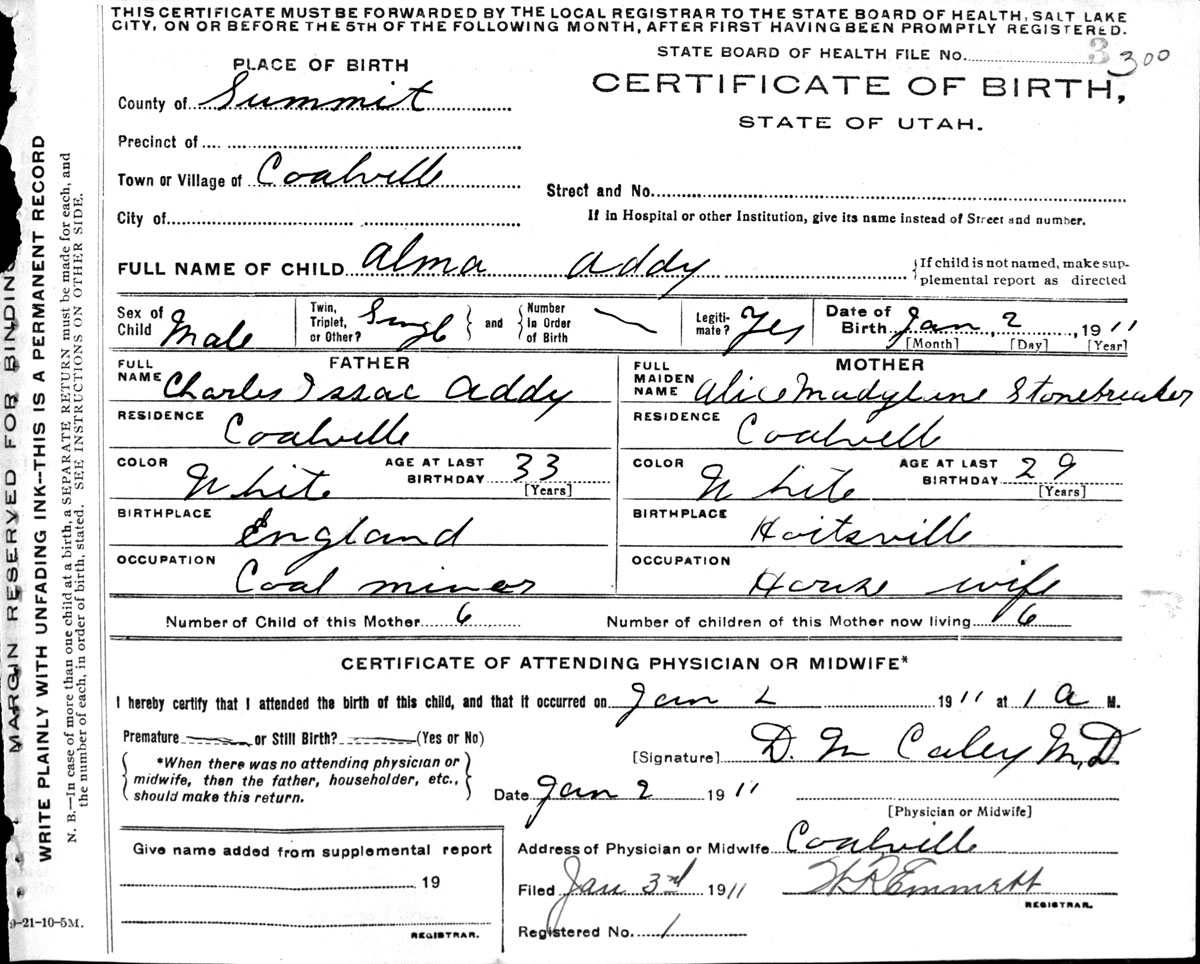 THIS CERTIFICATE MUST BE FORWARDED BY THE LOCAL REGISTRAR TO THE STATE BOARD OF HEALTH, SALT LAKE
CITY, ON OR BEFORE THE 5TH OF THE FOLLOWING MONTH, AFTER FIRST HAVING BEEN PROMPTLY REGISTERED.
STATE BOARD OF HEALTH FILE No. 3 300
PLACE OF BIRTH
CERTIFICATE OF BIRTH,
STATE OF UTAH.
County of Summit
Precinct of
Town or Village of Coalville
Street and No.
City of
If in Hospital or other Institution, give its name instead of Street and number.
FULL NAME OF CHILD Alma Addy
{If child is not named, make sup-
plemental report as directed
Sex of Child Male
Twin, Triplet, or Other? Singl } and { Number In Order of Birth
Legiti-mate? Yes
Date of Birth Jan, 2, 1911
[Month] [Day] [Year]
FATHER
FULL NAME Charles Issac Addy
RESIDENCE Coalville
COLOR White
AGE AT LAST BIRTHDAY 33
[Years]
BIRTHPLACE England
OCCUPATION Coal miner
MOTHER
FULL MAIDEN NAME Alice Madyline Stonebreaker
RESIDENCE Coalville
COLOR White
AGE AT LAST BIRTHDAY 29
[Years]
BIRTHPLACE Hoitsville
OCCUPATION House wife
Number of Child of this Mother 6
Number of children of this Mother now living 6
CERTIFICATE OF ATTENDING PHYSICIAN OR MIDWIFE*
I hereby certify that I attended the birth of this child, and that it occurred on Jan 2 1911 at 1 a M.
Premature or Still Birth? (Yes or No)
[Signature] D. M Caley M.D.
*When there was no attending physician or
midwife, then the father, householder, etc.,
should make this return.
Date Jan 2 1911
[Physician or Midwife]
Give name added from supplemental report
19
REGISTRAR.
Address of Physician or Midwife Coalville
Filed Jan 3rd 1911 W R Emmett
REGISTRAR.
Registered No. 1
MARGIN RESERVED FOR BINDING
WRITE PLAINLY WITH UNFADING INK--THIS IS A PERMANENT RECORD
N. B.—In case of more than one child at a birth, a SEPARATE RETURN must be made for each, and
the number of each, in order of birth, stated. SEE INSTRUCTIONS ON OTHER SIDE.
9-21-10-5M.